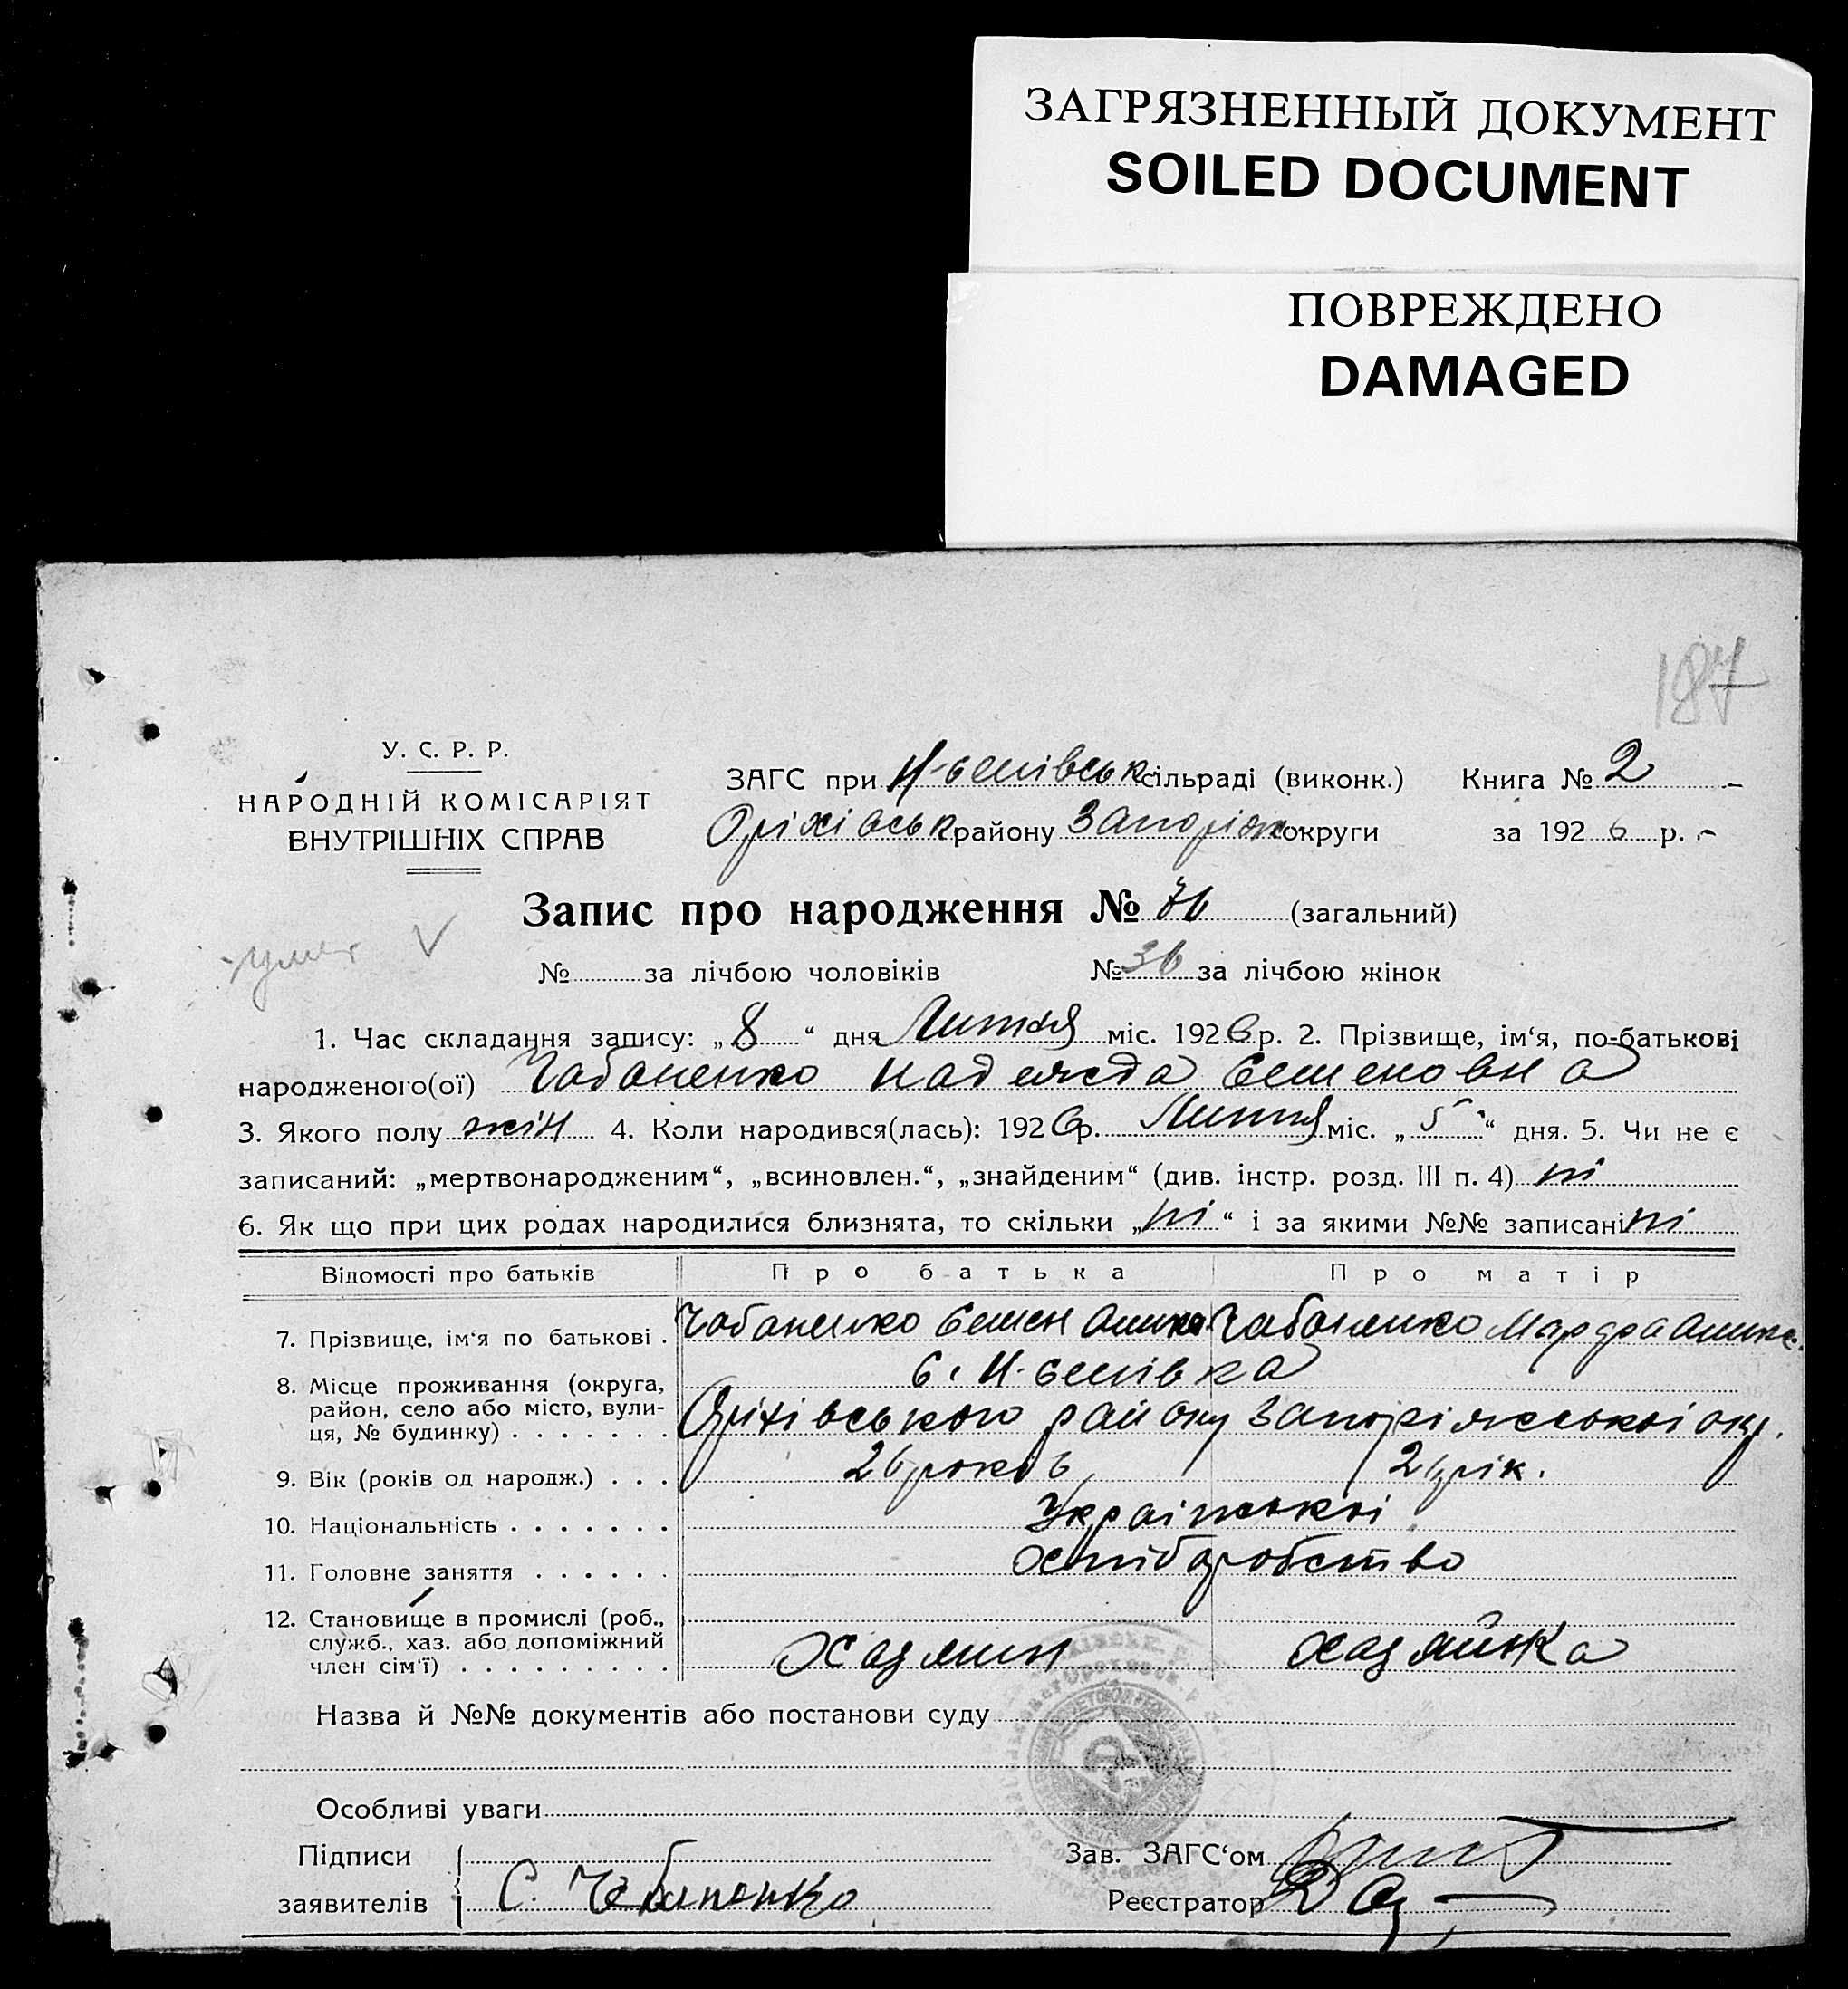 ЗАГРЯЗНЕННЫЙ ДОКУМЕНТ
SOILED DOCUMENT
ПОВРЕЖДЕНО
DAMAGED
187
У. С. Р. Р.
НАРОДНІЙ КОМІСАРІЯТ
ВНУТРІШНІХ СПРАВ
ЗАГС при сільраді (виконк.) Книга № 2
Оріхівськ району Запоріж округи за 1926 р.
Запис про народження № 76 (загальний)
№ за лічбою чоловіків № 36 за лічбою жінок
1. Час складання запису: „ 8 “ дня Липня міс. 1926 р. 2. Прізвище, ім‘я, по-батькові
народженого(ої) Чабаненко Надежда Семеновна
3. Якого полу жін 4. Коли народився(лась): 1926 р. Липня міс. „ 5 “ дня. 5. Чи не є
записаний: „мертвонародженим“, „всиновлен.“, „знайденим“ (див. інстр. розд. III п. 4) ні
6. Як що при цих родах народилися близнята, то скільки „ ні “ і за якими №№ записані ні
Відомості про батьків Про батька Про матір
7. Прізвище, ім‘я по батькові . Чабаненко Семен Чабаненко
8. Місце проживання (округа, район, село або місто, вулиця, № будинку) . . . . . . .
Оріхівського району Запоріжської окр.
9. Вік (років од народж.) . . . 26 років 26 рік.
10. Національність . . . . . . . Української
11. Головне заняття . . . . . . Хліборобство
12. Становище в промислі (роб.,
служб., хаз. або допоміжний
член сім‘ї) . . . . . . . . . Хазяин хазяйка
Назва й №№ документів або постанови суду
Особливі уваги
Підписи Зав. ЗАГС‘ом
заявителів С. Чабаненко Реєстратор